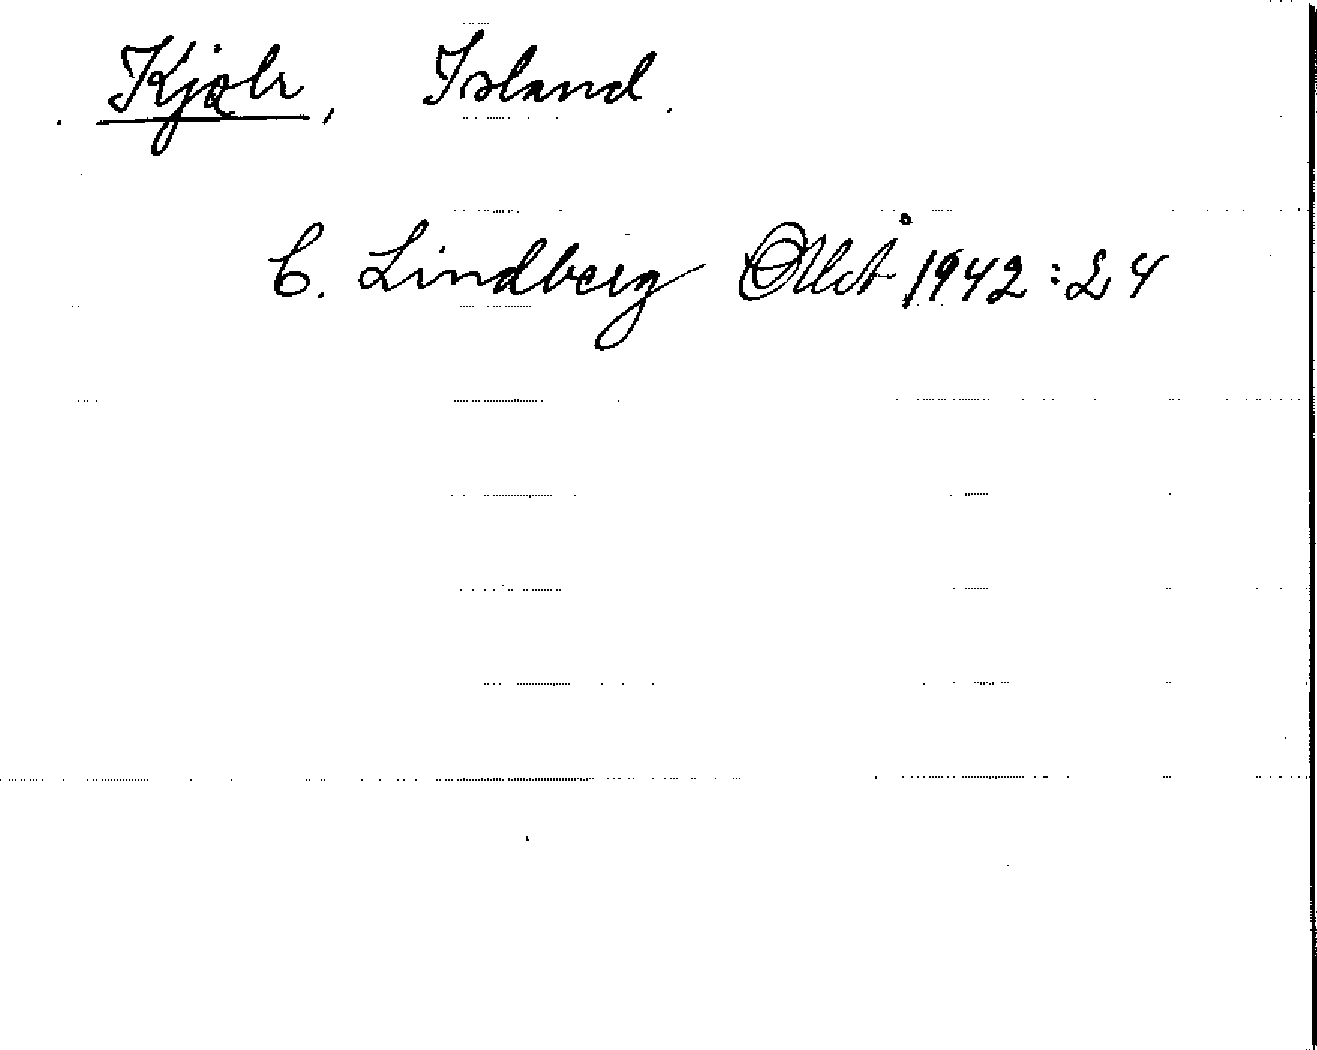 Kjǫlr, Island.
C. Lindberg OUÅ 1942:24